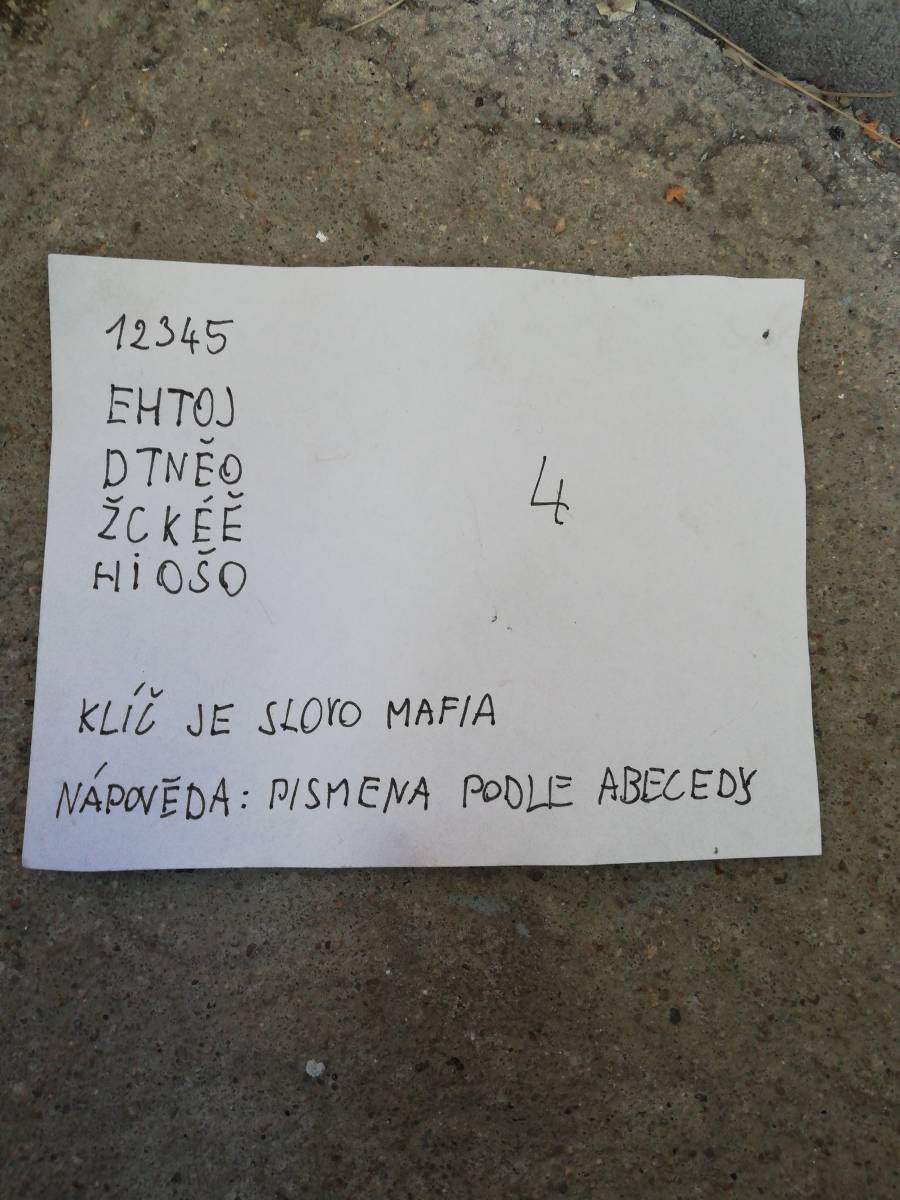 12345
EHTOJ
DTNĚO
ŽCKÉĚ
HIOŠO
4
KLÍČ JE SLOVO MAFIA
NÁPOVĚDA: PISMENA PODLE ABECEDY